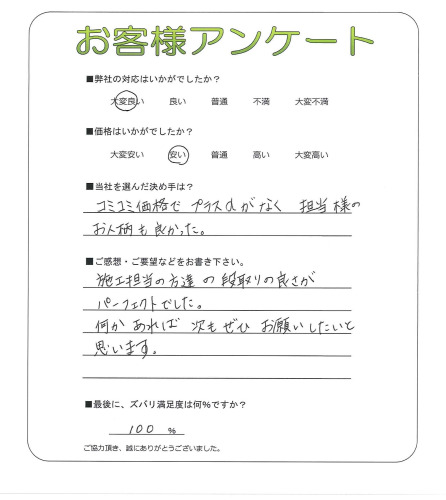 お客様アンケート
■弊社の対応はいかがでしたか？
大変良い 良い 普通 不満 大変不満
■価格はいかがでしたか？
大変安い 安い 普通 高い 大変高い
■当社を選んだ決め手は？
コミコミ価格で プラスαがなく 担当様の
お人柄も良かった。
■ご感想・ご要望などをお書き下さい。
施工担当の方達の段取りの良さが
パーフェクトでした。
何かあれば 次もぜひ お願いしたいと
思います。
■最後に、ズバリ満足度は何％ですか？
100 ％
ご協力頂き、誠にありがとうございました。